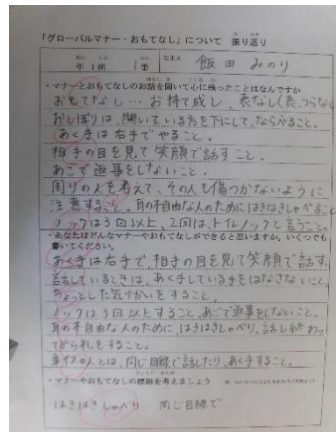 「グローバルマナー・おもてなし」について 振り返り
年 1組 1番 なまえ 飯田 みのり
・マナーとおもてなしのお話を聞いて心に残ったことはなんですか
おもてなし…お持て成し、表なし(表、うらなし
おしぼりは、開いている方を下にして、ならべること。
あく手は右手でやること。
相手の目を見て笑顔で話すこと。
あごで返事をしないこと。
周りの人を考えて、その人も傷つかないように
注意すること。耳の不自由な人のためにはきはきしゃべること
ノックは3回以上、2回は、トイレノックと言うこと。
・あなたはどんなマナーやおもてなしができると思いますか。いくつでも
書いてください。
あく手は右手で、相手の目を見て笑顔で話す。
話しているときは、あく手している手をはなさないこと。
ちょっとした気づかいをすること。
ノックは3回以上すること。あごで返事をしないこと。
耳の不自由な人のために、はきはきしゃべり、話し終わっ
てから礼をすること。
車イスの人とは、同じ目線で話したり、あく手すること。
・マナーやおもてなしの標語を考えましょう
はきはきしゃべり 同じ目線で